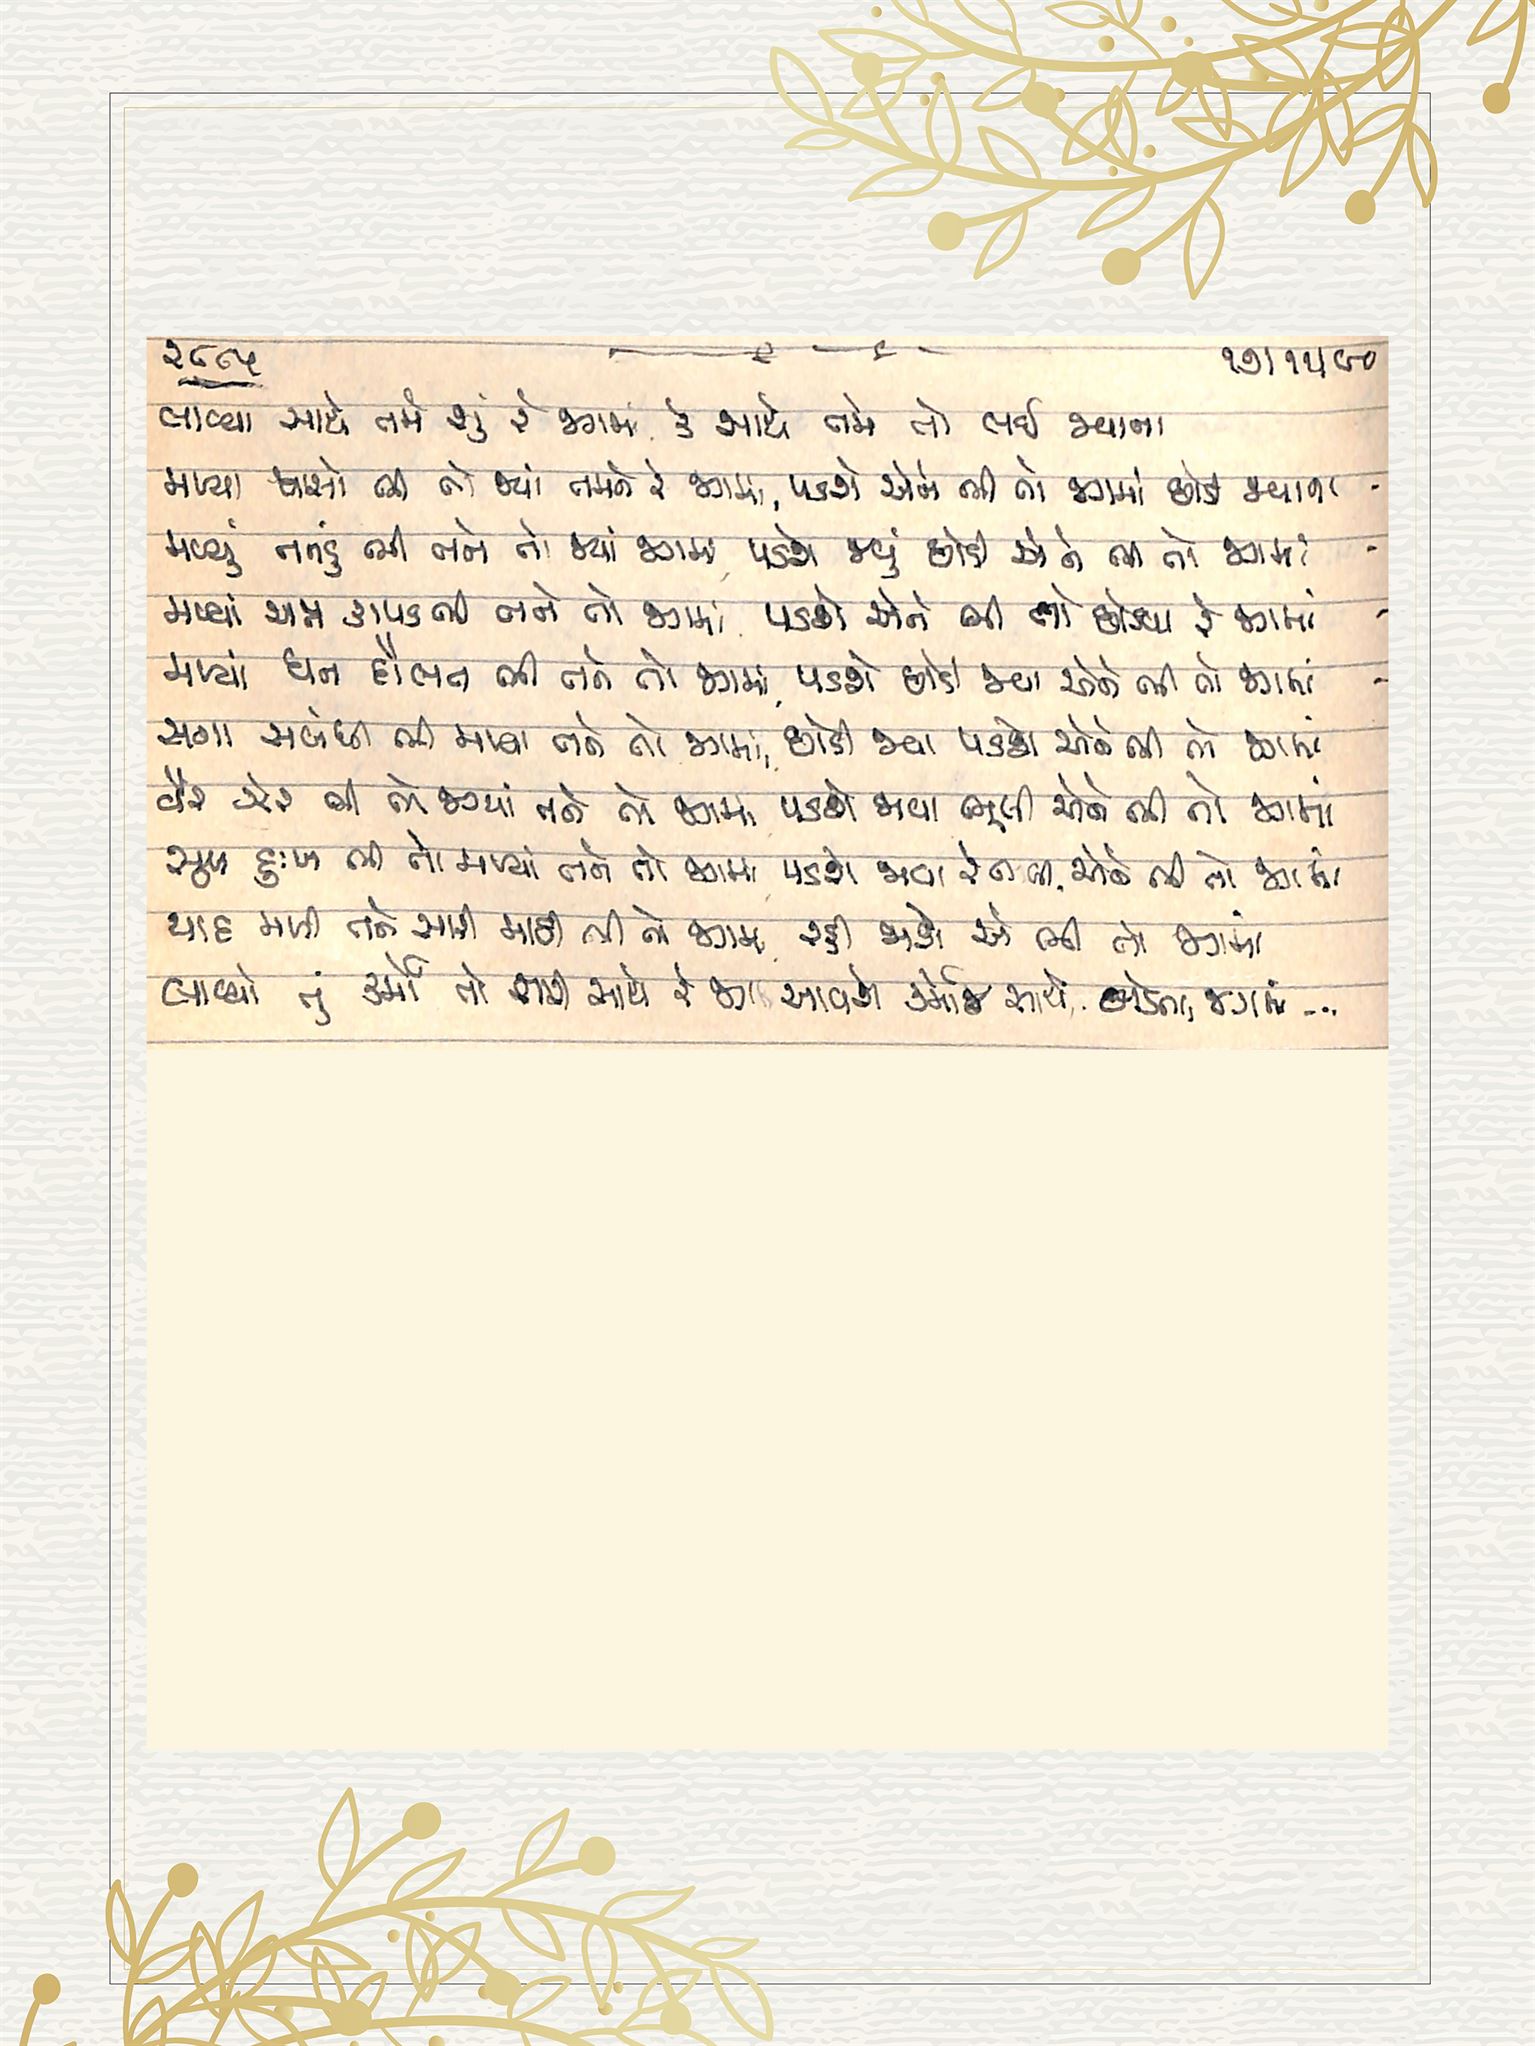 ૨૮૯૫ ૧૭/૧૧/૯૦
લાવ્યા સાથે તમે શું રે જગમાં, કે સાથે તમે તો લઈ જવાના
મળ્યા શ્વાસો ભી તો જ્યાં તમને રે જગમાં, પડશે એને ભી તો જગમાં છોડી જવાના -
મળ્યું તનડું ભી તને તો જ્યાં જગમાં, પડશે જવું છોડી એને ભી તો જગમાં -
મળ્યાં અન્ન કાપડ ભી તને તો જગમાં, પડશે એને ભી તો છોડવા રે જગમાં -
મળ્યાં ધન દૌલત ભી તને તો જગમાં, પડશે છોડી જવા એને ભી તો જગમાં -
સગા સબંધી ભી મળ્યા તને તો જગમાં, છોડી જવા પડશે એને ભી તો જગમાં
વૈર ઝેર ભી તો જાગ્યાં તને તો જગમાં, પડશે જવા ભૂલી એને ભી તો જગમાં
સુખ દુઃખ ભી તો મળ્યાં તને તો જગમાં, પડશે જવા એને ભી તો જગમાં
યાદ મળી તને સારી માઠી ભી તો જગમાં, રહી જાશે એ ભી તો જગમાં
લાવ્યો તું કર્મો તો તારી સાથે રે આવશે કર્મો જ સાથે, છોડતા જગમાં ...